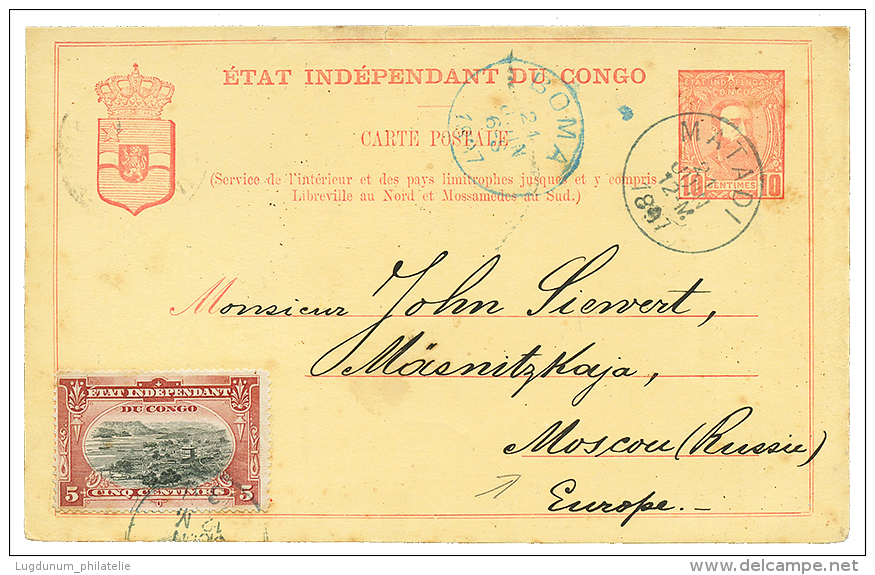 ÉTAT INDÉPENDANT DU CONGO
CARTE POSTALE
(Service de l'intérieur et des pays limitrophes jusques et y compris
Libreville au Nord et Mossamedes au Sud.)
ETAT INDEPENDANT
CONGO
10 CENTIMES 10
BOMA
21
6-S
1897
MATADI
12 M
1897
Monsieur John Siewert,
Mäsnitzkaja,
Moscou (Russie)
Europe.-
ETAT INDÉPENDANT
DU CONGO
5 CINQ CENTIMES 5
Lugdunum_philatelie
delcampe.net